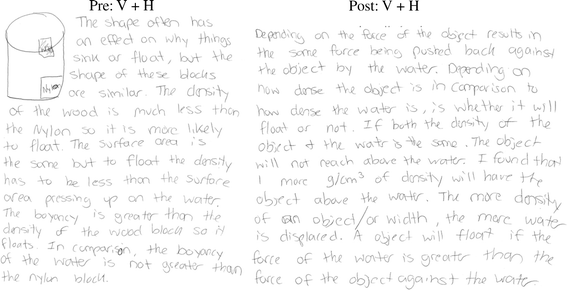 Pre: V + H
The shape often has
an effect on why things
sink or float, but the
shape of these blocks
are similar. The density
of the wood is much less than
the Nylon so it is more likely
to float. The surface area is
the same but to float the density
has to be less than the surface
area pressing up on the water.
The boyancy is greater than the
density of the wood block so it
floats. In comparison, the boyancy
of the water is not greater than
the nylon block.
Post: V + H
Depending on the force of the object results in
the same force being pushed back against
the object by the water. Depending on
how dense the object is in comparison to
how dense the water is, is whether it will
float or not. If both the density of the
object & the water is the same. The object
will not reach above the water. I found that
1 more g/cm³ of density will have the
object above the water. The more density
of an object/or width, the more water
is displaced. A object will float if the
force of the water is greater than the
force of the object against the water.